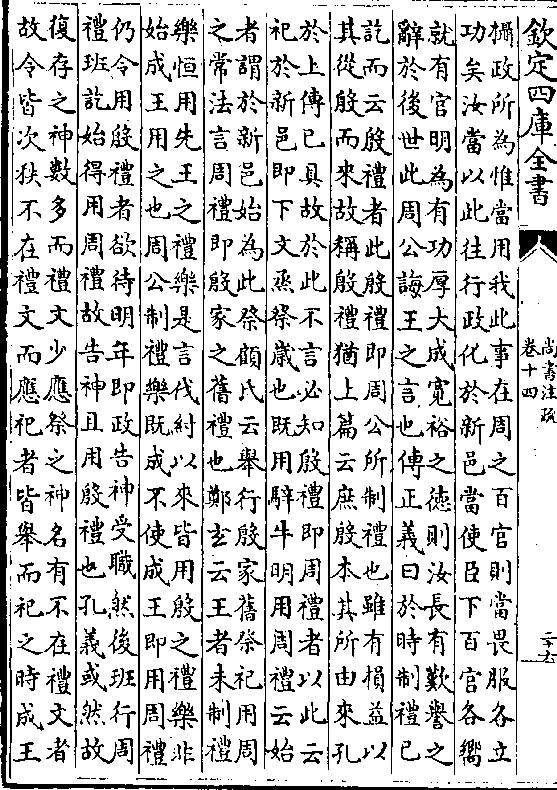 欽定四庫全書
尚書注疏
卷十四
攝政所為惟當用我此事在周之百官則當畏服各立
功矣汝當以此往行政化於新邑當使臣下百官各嚮
就有官明為有功厚大成寬裕之德則汝長有歎譽之
辭於後世此周公誨王之言也傳正義曰於時制禮已
訖而云殷禮者此殷禮即周公所制禮也雖有損益以
其從殷而來故稱殷禮猶上篇云庶殷本其所由來孔
於上傳已具故於此不言必知殷禮即周禮者以此云
祀於新邑即下文烝祭歲也既用騂牛明用周禮云始
者謂於新邑始為此祭顧氏云舉行殷家舊祭祀用周
之常法言周禮即殷家之舊禮也鄭玄云王者未制禮
樂恒用先王之禮樂是言伐紂以來皆用殷之禮樂非
始成王用之也周公制禮樂既成不使成王即用周禮
仍令用殷禮者欲待明年即政告神受職然後班行周
禮班訖始得用周禮故告神且用殷禮也孔義或然故
復存之神數多而禮文少應祭之神名有不在禮文者
故令皆次秩不在禮文而應祀者皆舉而祀之時成王